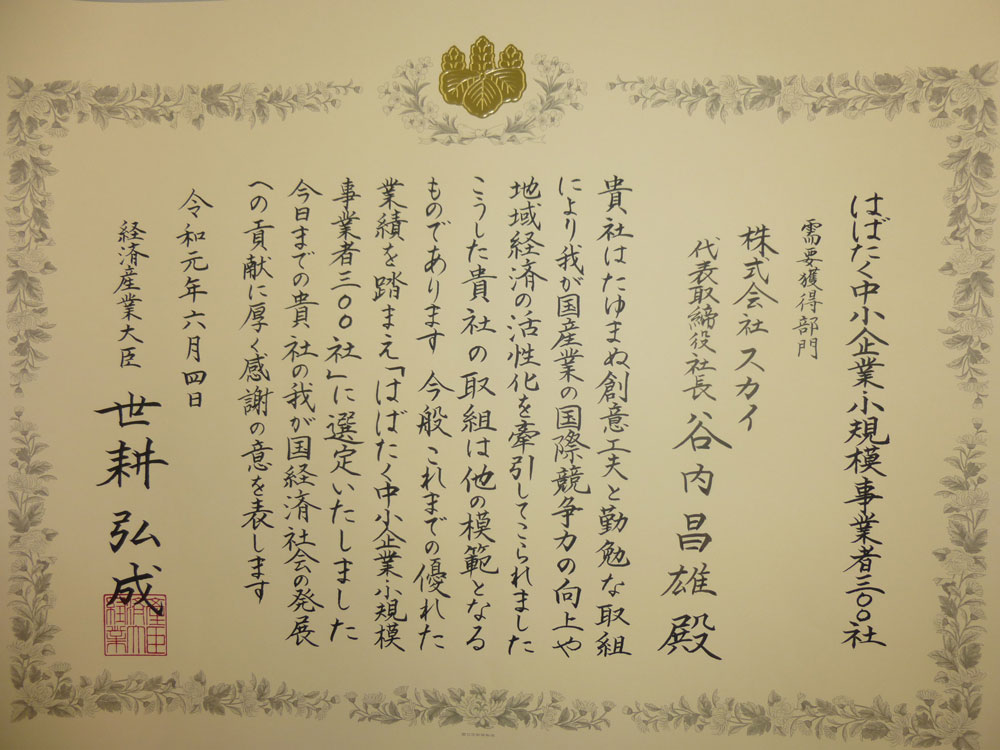 はばたく中小企業・小規模事業者三〇〇社
需要獲得部門
株式会社 スカイ
代表取締役社長 谷内昌雄 殿
貴社はたゆまぬ創意工夫と勤勉な取組
により我が国産業の国際競争力の向上や
地域経済の活性化を牽引してこられました
こうした貴社の取組は他の模範となる
ものであります 今般 これまでの優れた
業績を踏まえ「はばたく中小企業・小規模
事業者三〇〇社」に選定いたしました
今日までの貴社の我が国経済社会の発展
への貢献に厚く感謝の意を表します
令和元年六月四日
経済産業大臣 世耕弘成